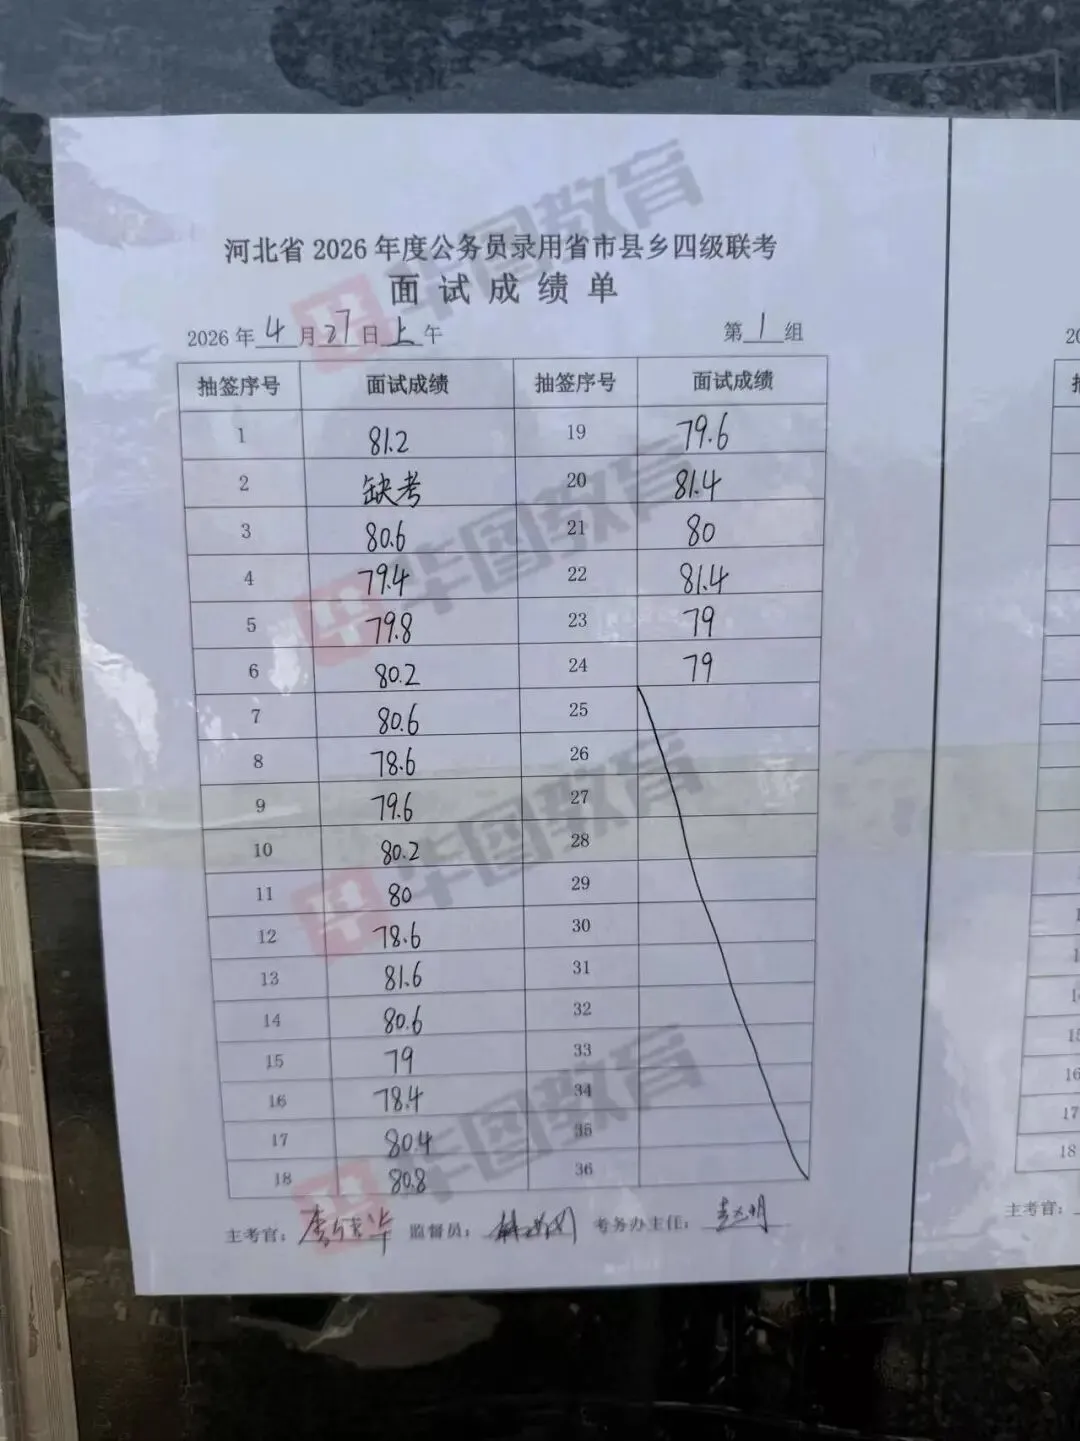 河北省 2026 年度公务员录用省市县乡四级联考
面试成绩单
2026 年 4 月 27 日 上 午 第 1 组
抽签序号 面试成绩 抽签序号 面试成绩
1 81.2 19 79.6
2 缺考 20 81.4
3 80.6 21 80
4 79.4 22 81.4
5 79.8 23 79
6 80.2 24 79
7 80.6 25
8 78.6 26
9 79.6 27
10 80.2 28
11 80 29
12 78.6 30
13 81.6 31
14 80.6 32
15 79 33
16 78.4 34
17 80.4 35
18 80.8 36
主考官： 监督员： 考务办主任：
华图教育
华图教育
华图教育
华图教育
20
抽
14
15
16
17
18
主考官：